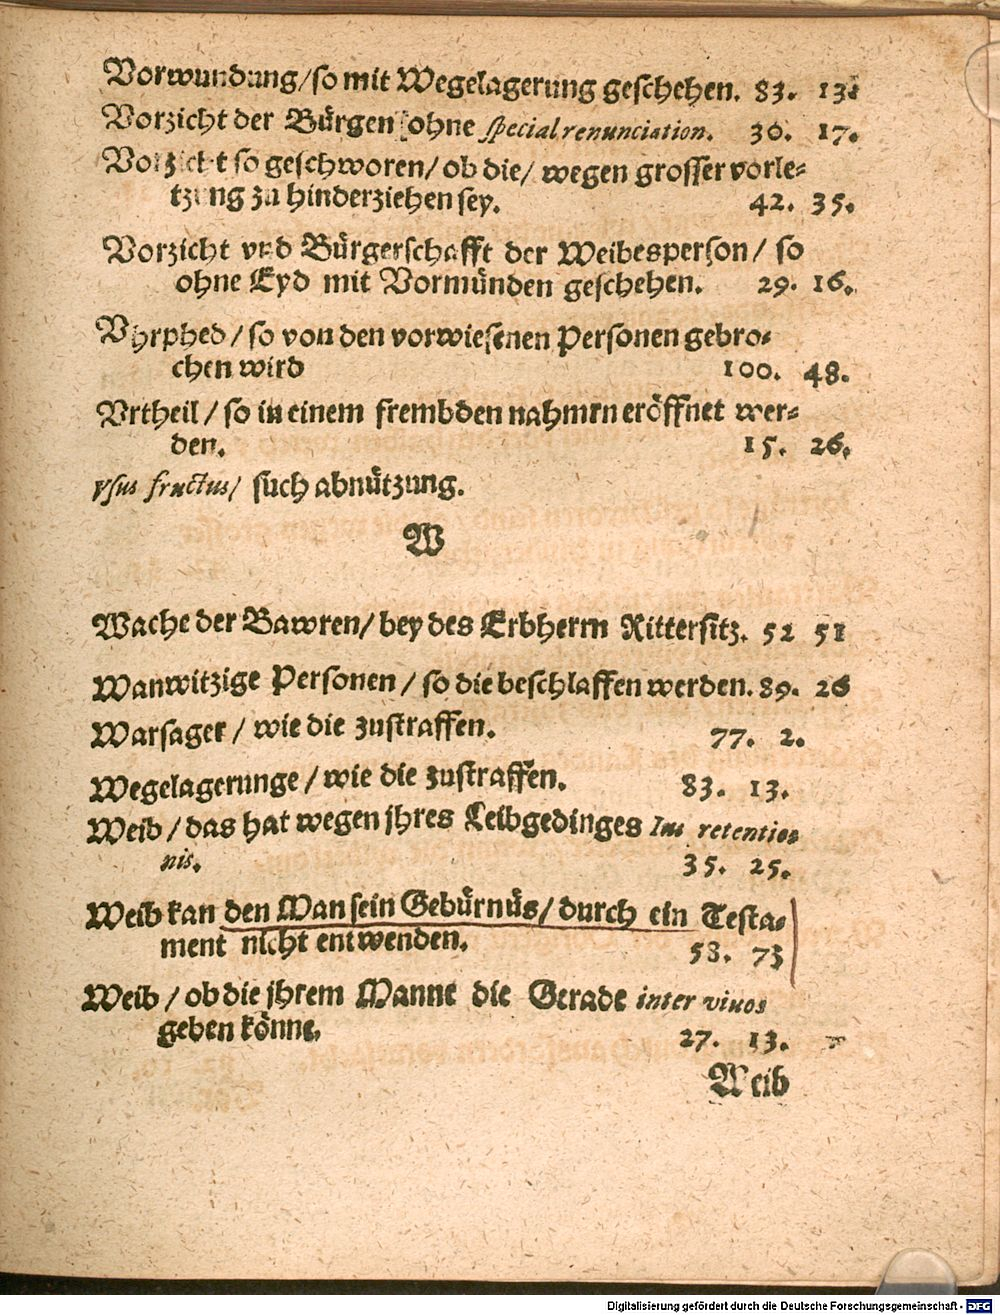 Vorwundung/so mit Wegelagerung geschehen. 83. 13.
Vorzicht der Bürgen/ohne special renunciation. 36. 17.
Vorzicht so geschworen/ ob die/ wegen grosser vorle-
tzung zu hinderziehen sey. 42. 35.
Vorzicht vnd Bürgerschafft der Weibesperson/ so
ohne Eyd mit Vormünden geschehen. 29. 16.
Vhrphed/ so von den vorwiesenen Personen gebro-
chen wird 100. 48.
Vrtheil/ so in einem frembden nahmen eröffnet wer-
den. 15. 26.
vsus fructus/ such abnützung.
W
Wache der Bawren/ bey des Erbherrn Rittersitz. 52 51
Wanwitzige Personen/ so die beschlaffen werden. 89. 26
Warsager/ wie die zustraffen. 77. 2.
Wegelagerunge/ wie die zustraffen. 83. 13.
Weib/ das hat wegen jhres Leibgedinges Ius retentio-
nis. 35. 25.
Weib kan den Man sein Gebürnüs/ durch ein Testa-
ment nicht entwenden. 58. 73
Weib/ ob die jhrem Manne die Gerade inter viuos
geben könne. 27. 13.
Weib
Digitalisierung gefördert durch die Deutsche Forschungsgemeinschaft - DFG